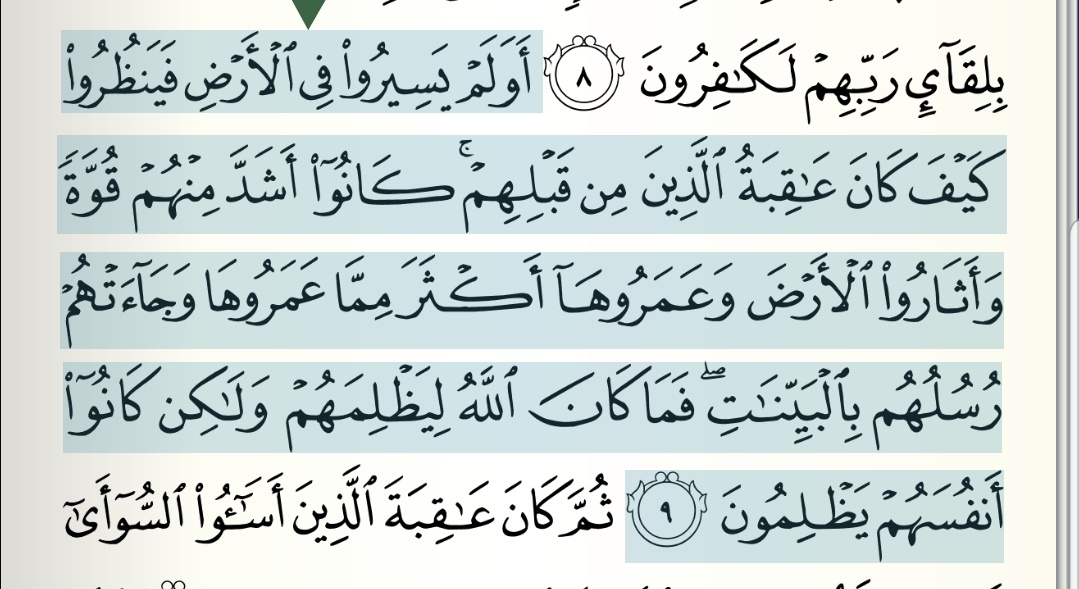 بِلِقَآئِ رَبِّهِمْ لَكَـٰفِرُونَ ٨ أَوَلَمْ يَسِيرُوا۟ فِى ٱلْأَرْضِ فَيَنظُرُوا۟
كَيْفَ كَانَ عَـٰقِبَةُ ٱلَّذِينَ مِن قَبْلِهِمْ ۚ كَانُوٓا۟ أَشَدَّ مِنْهُمْ قُوَّةً
وَأَثَارُوا۟ ٱلْأَرْضَ وَعَمَرُوهَآ أَكْثَرَ مِمَّا عَمَرُوهَا وَجَآءَتْهُمْ
رُسُلُهُم بِٱلْبَيِّنَـٰتِ ۖ فَمَا كَانَ ٱللَّهُ لِيَظْلِمَهُمْ وَلَـٰكِن كَانُوٓا۟
أَنفُسَهُمْ يَظْلِمُونَ ٩ ثُمَّ كَانَ عَـٰقِبَةَ ٱلَّذِينَ أَسَـٰٓـُٔوا۟ ٱلسُّوٓأَىٰٓ